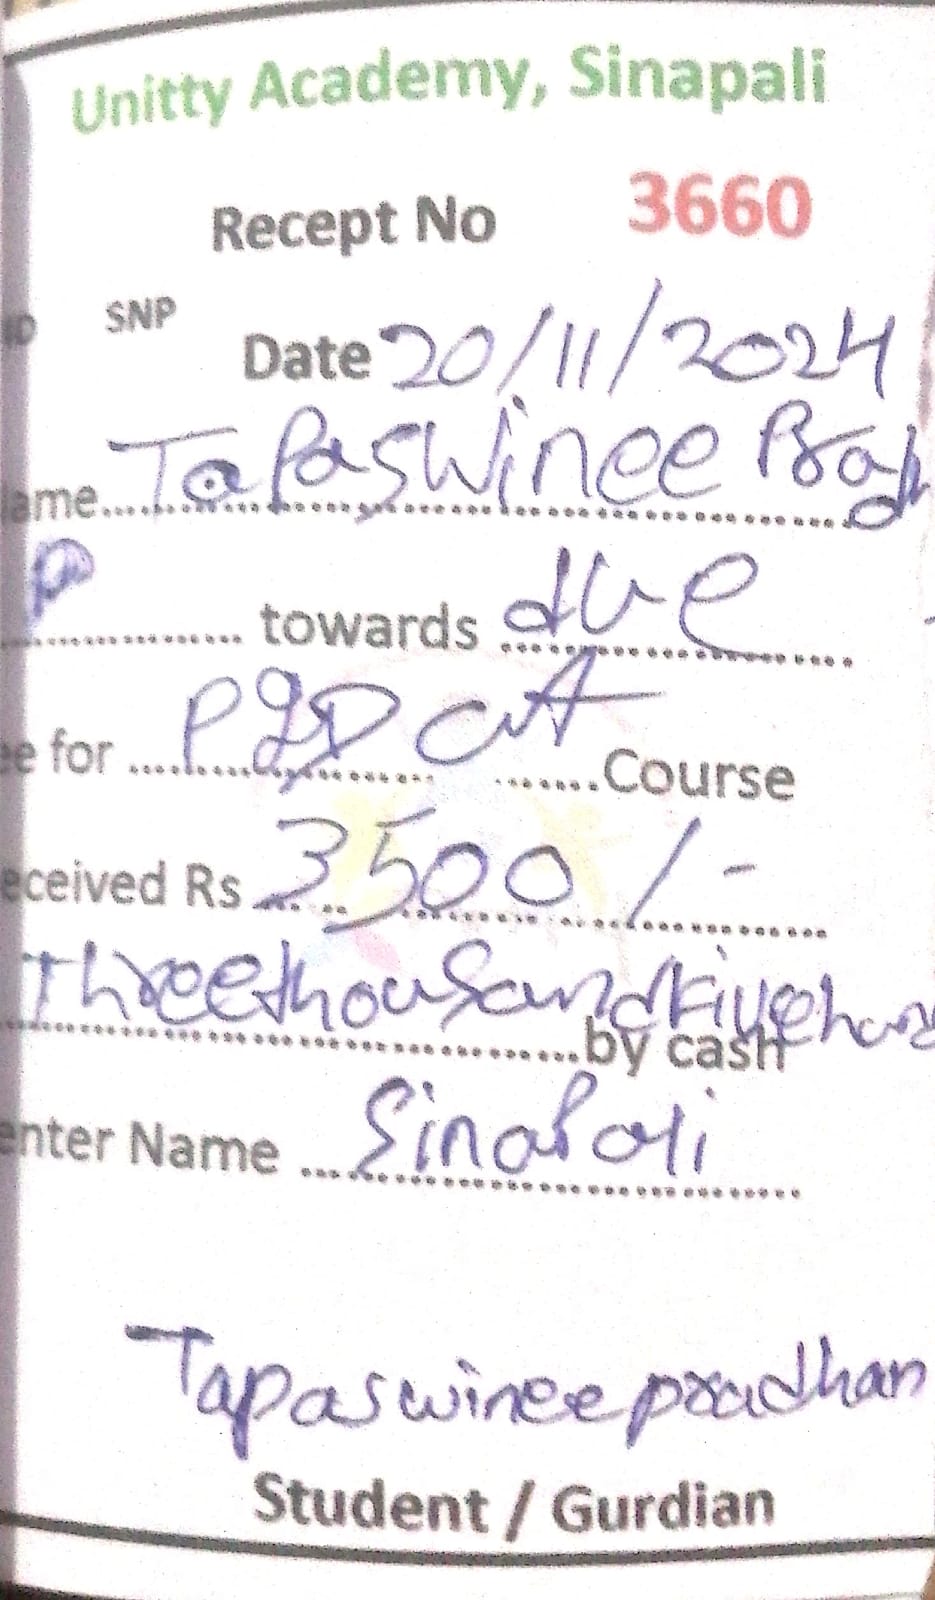 Unitty Academy, Sinapali
Recept No 3660
ID SNP
Date 20/11/2024
ame Tapaswinee Prad
towards due
ee for PGDCA Course
eceived Rs 3500/-
Three thousand Five hund
by cash
enter Name Sinapali
Tapaswinee pradhan
Student / Gurdian